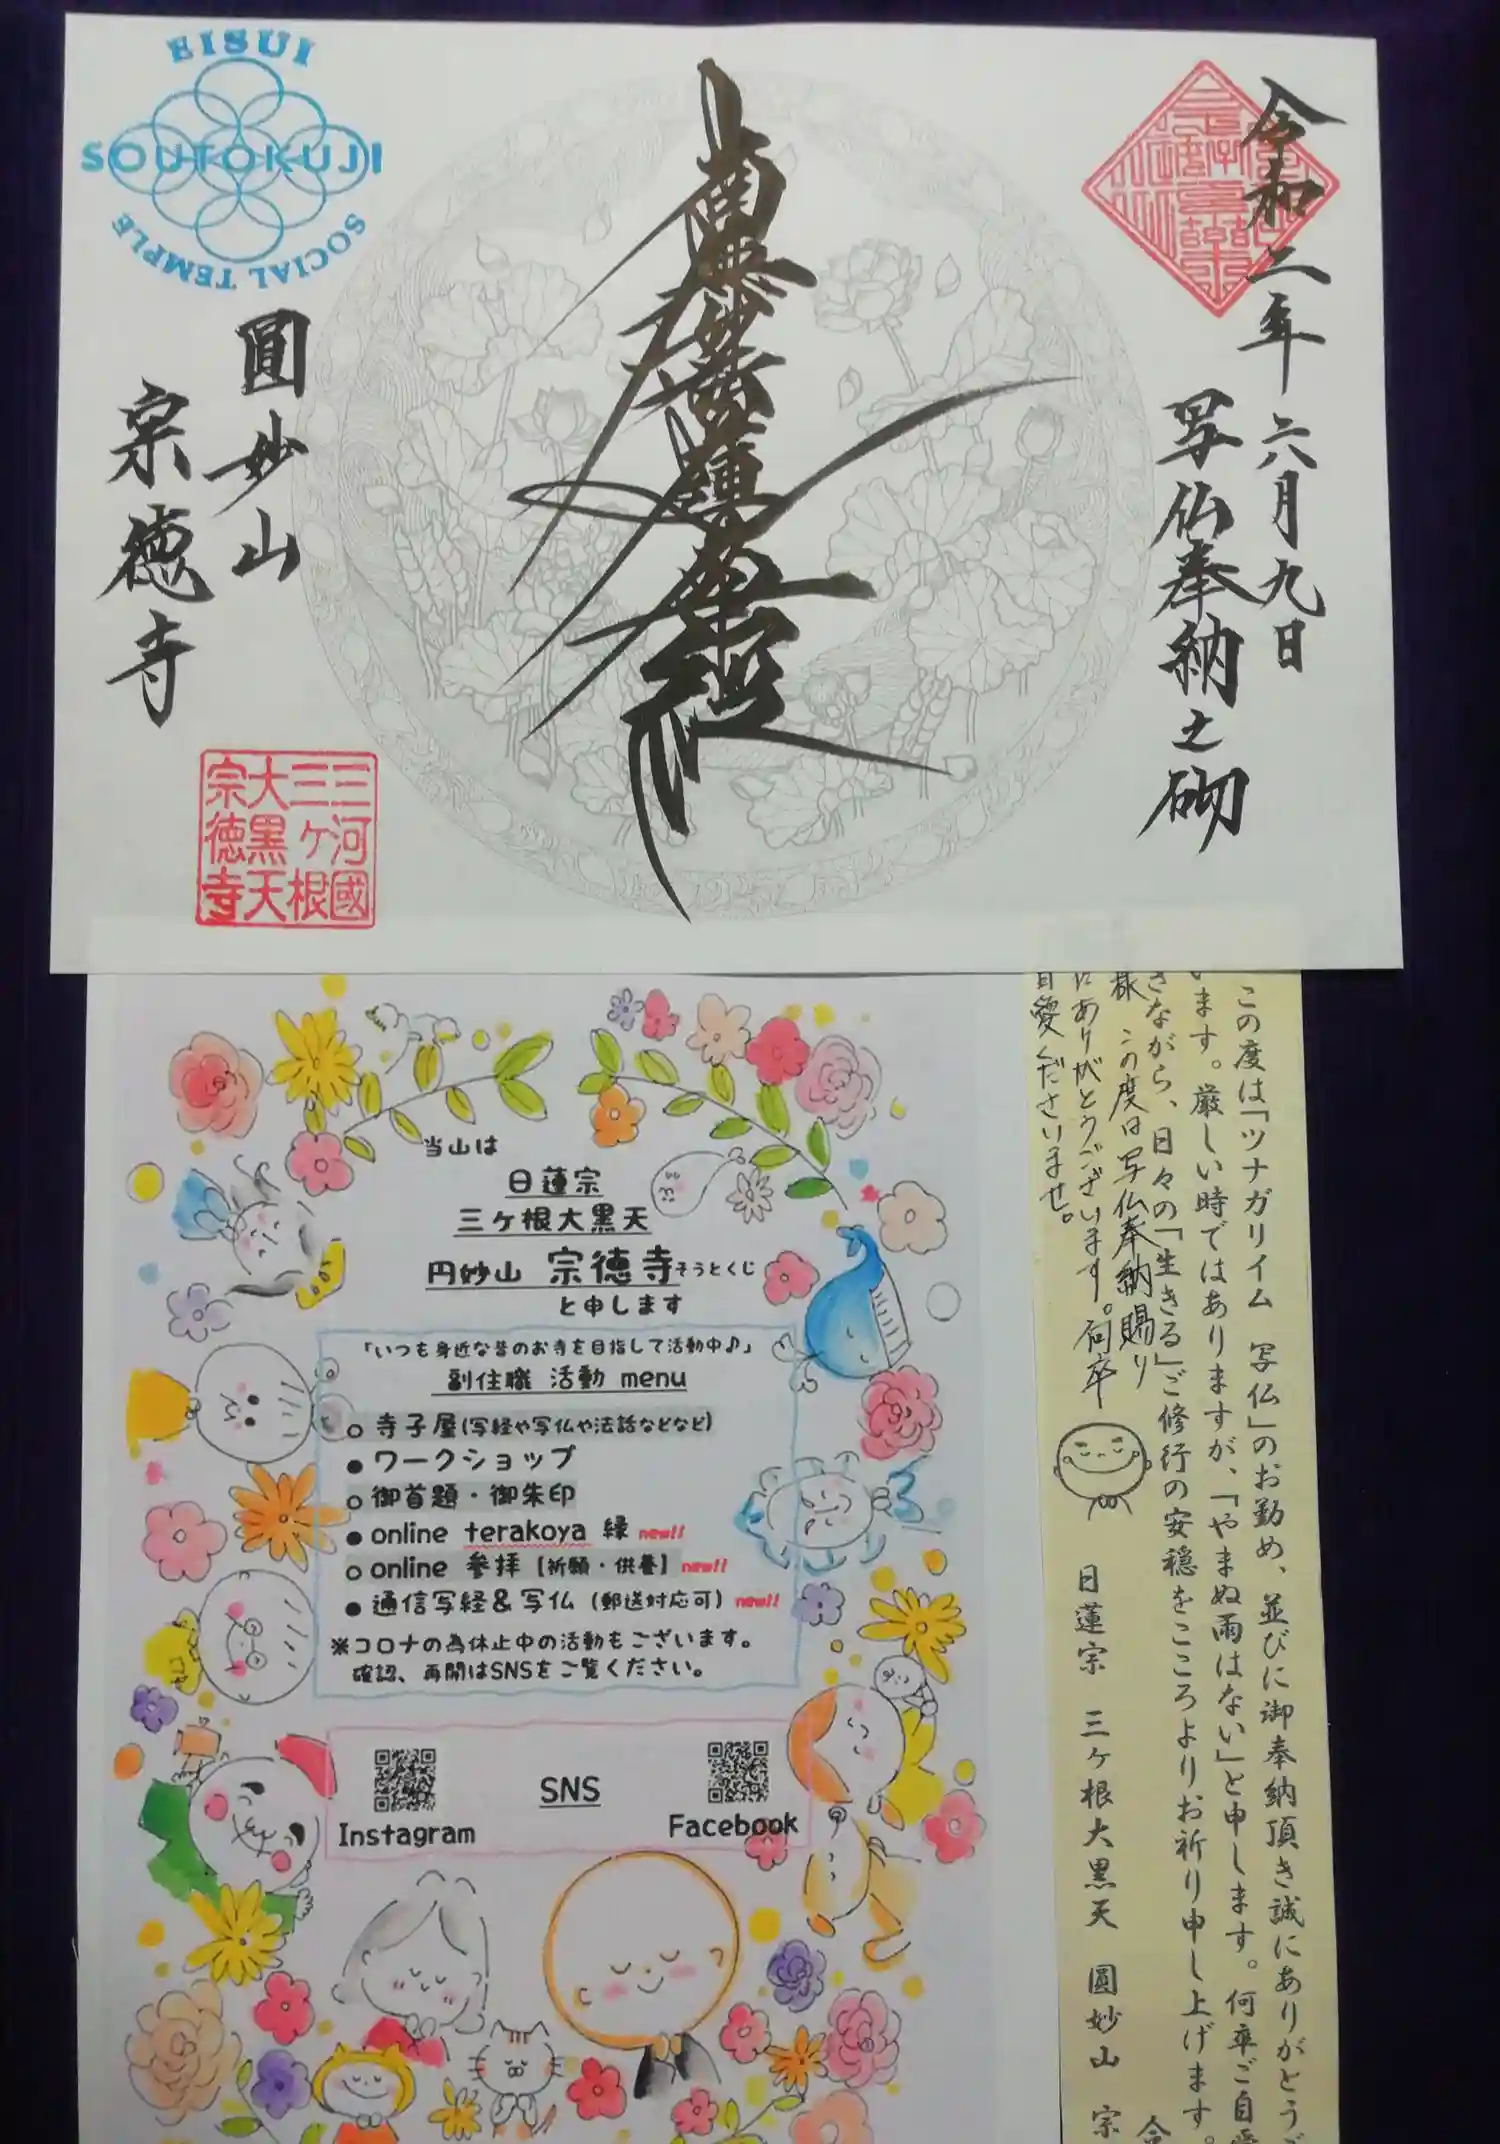 EISUI
SOUTOKUJI
SOCIAL TEMPLE
令和二年六月九日
写仏奉納之砌
南無妙法蓮華経
圓妙山
宗徳寺
三河國
三ヶ根
大黒天
宗徳寺
当山は
日蓮宗
三ヶ根大黒天
円妙山 宗徳寺そうとくじ
と申します
「いつも身近な昔のお寺を目指して活動中♪」
副住職 活動 menu
○ 寺子屋(写経や写仏や法話などなど)
● ワークショップ
○ 御首題・御朱印
● online terakoya 縁 new!!
○ online 参拝 [祈願・供養] new!!
● 通信写経&写仏 (郵送対応可) new!!
※コロナの為休止中の活動もございます。
確認、再開はSNSをご覧ください。
SNS
Instagram
Facebook
この度は「ツナガリイム 写仏」のお勤め、並びに御奉納頂き誠にありがとうご
います。厳しい時ではありますが、「やまぬ雨はない」と申します。何卒ご自愛
きながら、日々の「生きる」ご修行の安穏をこころよりお祈り申し上げます。
様 この度は写仏奉納賜り
にありがとうございます。何卒
自愛くださいませ。
日蓮宗 三ヶ根大黒天 圓妙山 宗